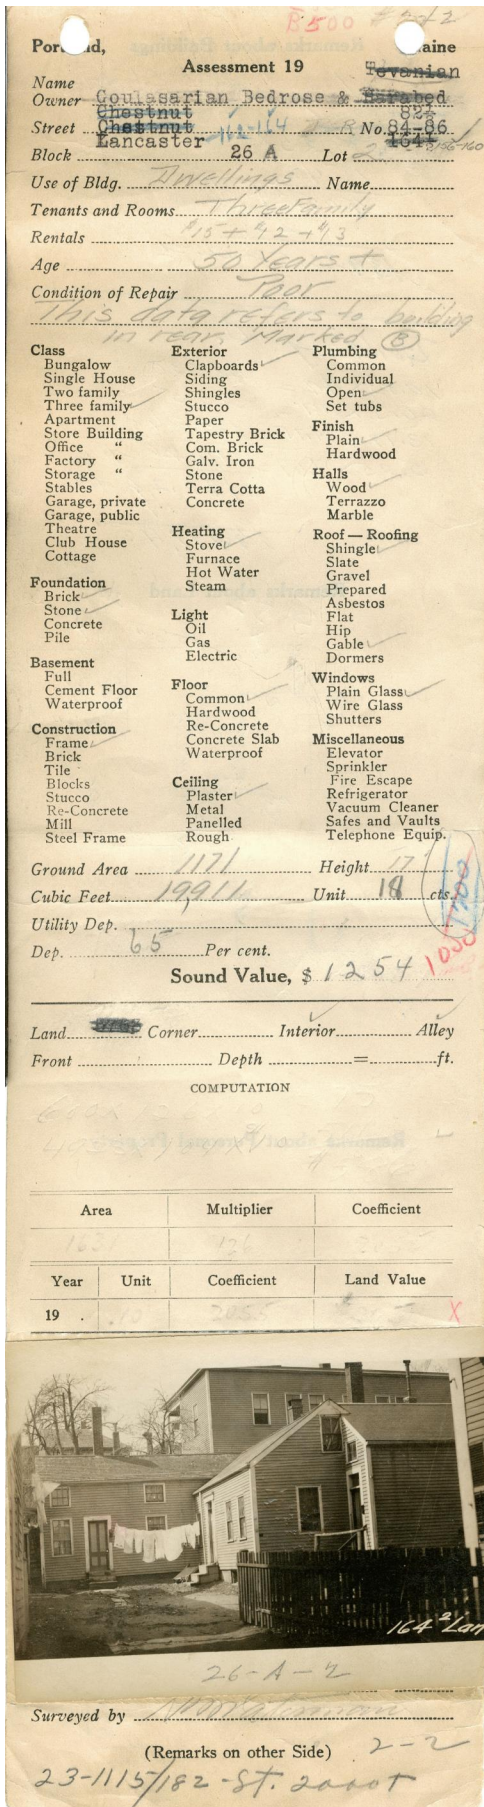 B 500
Portland, Maine
Assessment 19
Tevanian
Name
Owner Goulasarian Bedrose & Sarabed
Chestnut 82½
Street Chestnut 162-164 No. 84-86
Lancaster 164½ 156-160
Block 26 A Lot 2
Use of Bldg. Dwellings Name
Tenants and Rooms Three Family
Rentals $15 + $12 + $13
Age 50 Years +
Condition of Repair Poor
This data refers to building
in rear. Marked (B)
Class
Bungalow
Single House
Two family
Three family ✓
Apartment
Store Building
Office "
Factory "
Storage "
Stables
Garage, private
Garage, public
Theatre
Club House
Cottage
Foundation
Brick ✓
Stone ✓
Concrete
Pile
Basement
Full
Cement Floor
Waterproof
Construction
Frame ✓
Brick
Tile
Blocks
Stucco
Re-Concrete
Mill
Steel Frame
Exterior
Clapboards ✓
Siding
Shingles
Stucco
Paper
Tapestry Brick
Com. Brick
Galv. Iron
Stone
Terra Cotta
Concrete
Heating
Stove ✓
Furnace
Hot Water
Steam
Light
Oil
Gas
Electric
Floor
Common ✓
Hardwood
Re-Concrete
Concrete Slab
Waterproof
Ceiling
Plaster ✓
Metal
Panelled
Rough
Plumbing
Common
Individual
Open ✓
Set tubs
Finish
Plain ✓
Hardwood
Halls
Wood ✓
Terrazzo
Marble
Roof — Roofing
Shingle ✓
Slate
Gravel
Prepared
Asbestos
Flat
Hip
Gable ✓
Dormers
Windows
Plain Glass ✓
Wire Glass
Shutters
Miscellaneous
Elevator
Sprinkler
Fire Escape
Refrigerator
Vacuum Cleaner
Safes and Vaults
Telephone Equip.
Ground Area 1171 Height 17
Cubic Feet 19911 Unit 18 cts.
1200
Utility Dep.
Dep. 65 Per cent.
1050
Sound Value, $ 1254
Land Corner Interior ✓ Alley ✓
Front Depth = ft.
COMPUTATION
Area Multiplier Coefficient
163 126
Year Unit Coefficient Land Value
19 . .10 2055 X
164² Lan
26-A-2
Surveyed by
(Remarks on other Side) 2-2
23-1115/182-St. 2000T